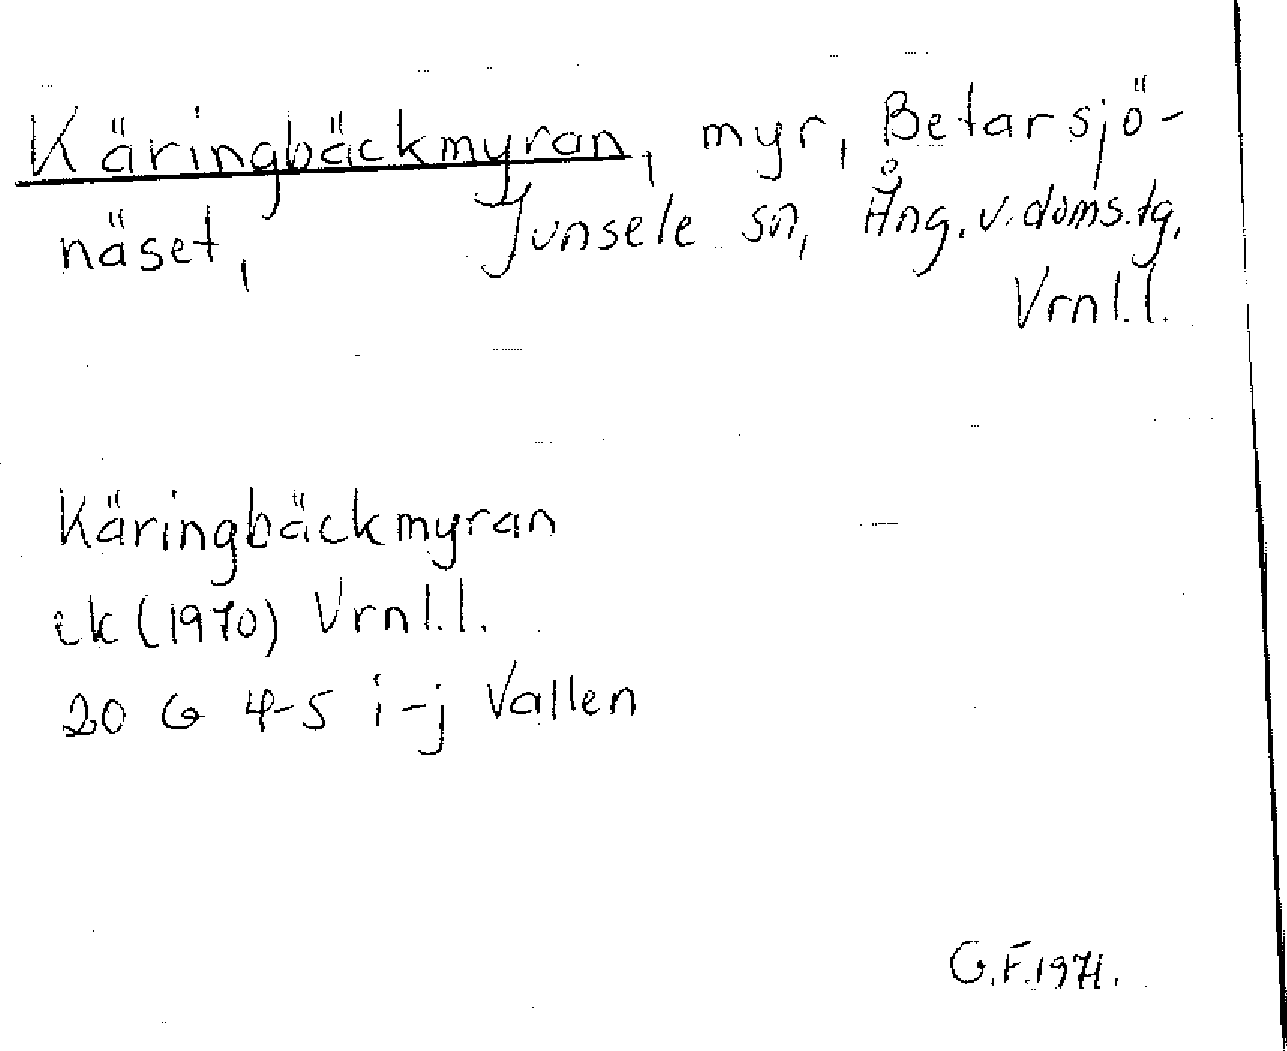 Käringbäckmyran, myr, Betarsjö-
näset, Junsele sn, Ång. v. doms.tg,
Vrnl.l.
Käringbäckmyran
ek (1970) Vrnl.l.
20 G 4-5 i-j Vallen
G.F. 1971.